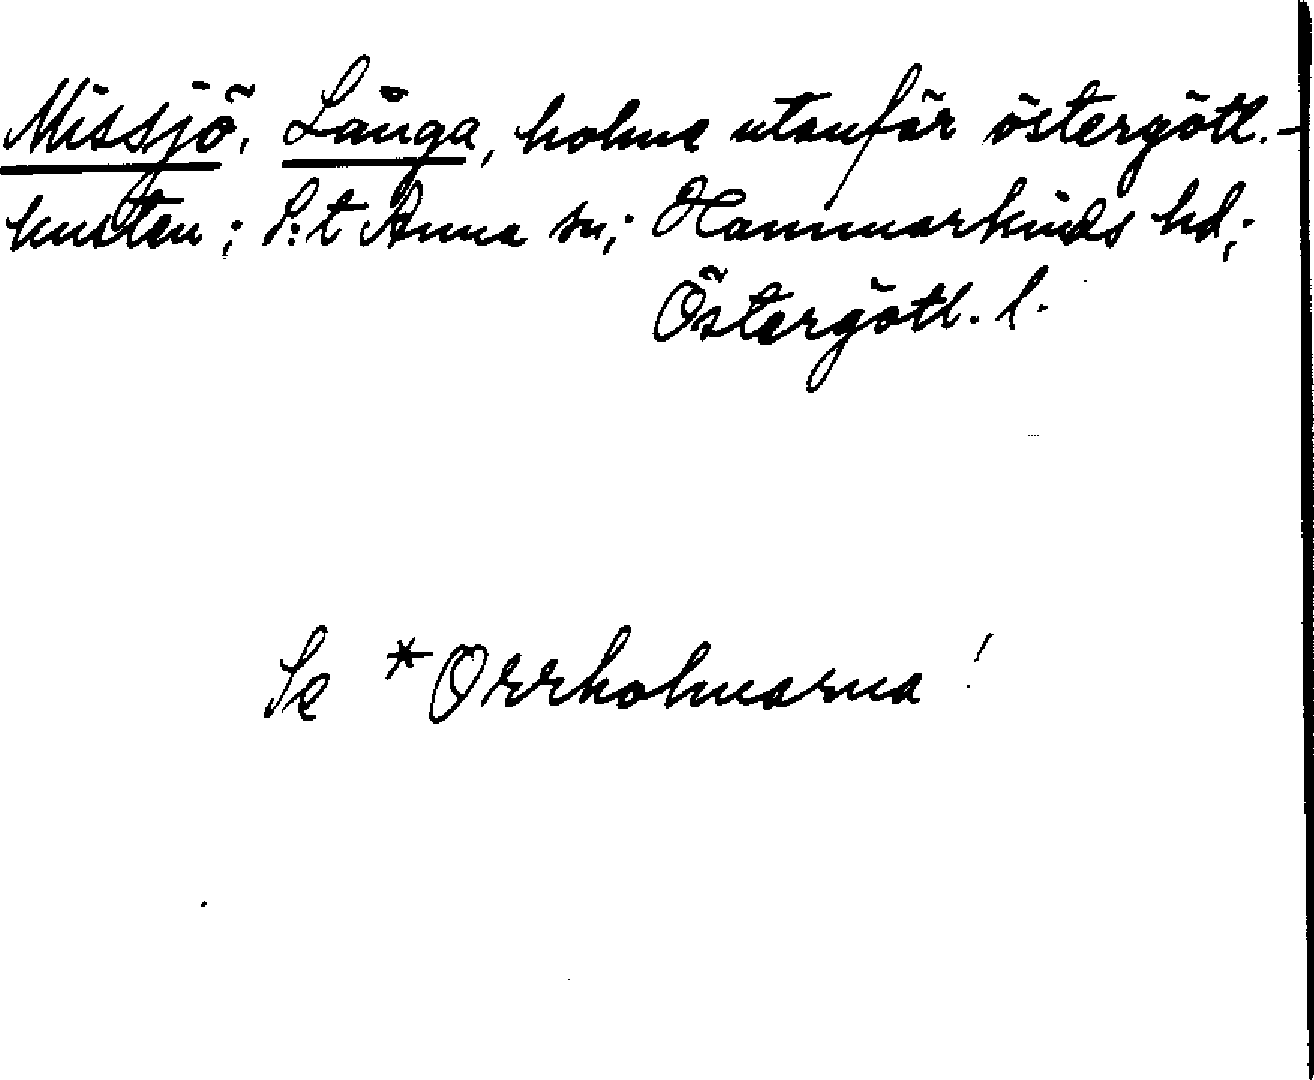 Missjö, Långa, holme utanför östergötl.-
kusten; S:t Anna sn; Hammarkinds hd;
Östergötl. l.
Se *Orrholmarna!